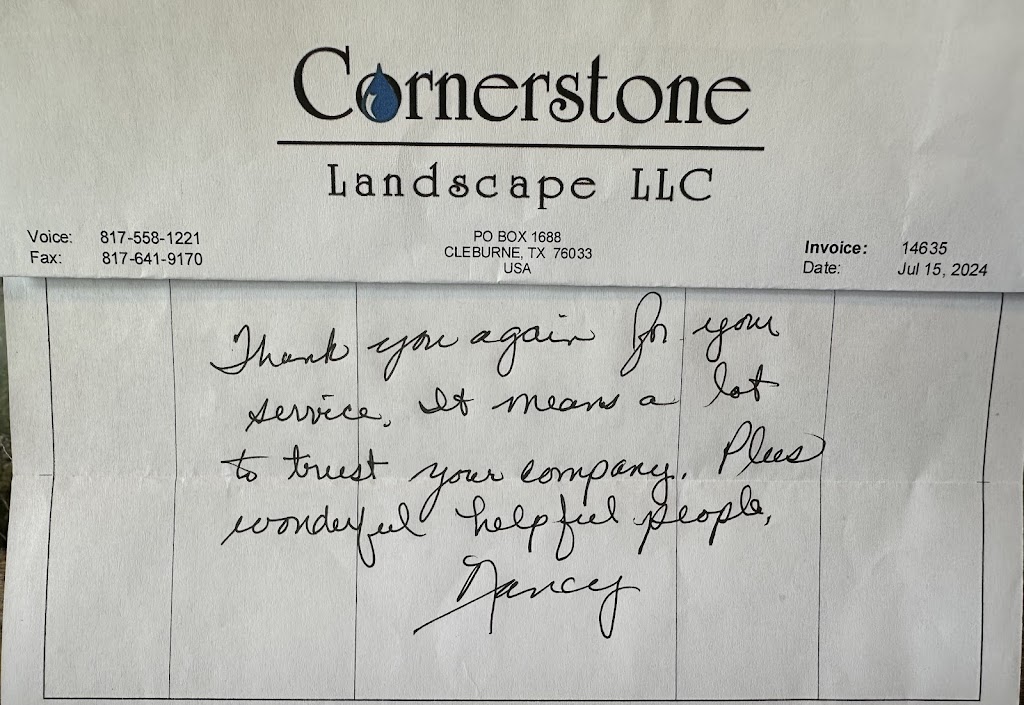 Cornerstone
Landscape LLC
Voice: 817-558-1221
Fax: 817-641-9170
PO BOX 1688
CLEBURNE, TX 76033
USA
Invoice: 14635
Date: Jul 15, 2024
Thank you again for your
service. It means a lot
to trust your company. Plus
wonderful helpful people,
Nancy